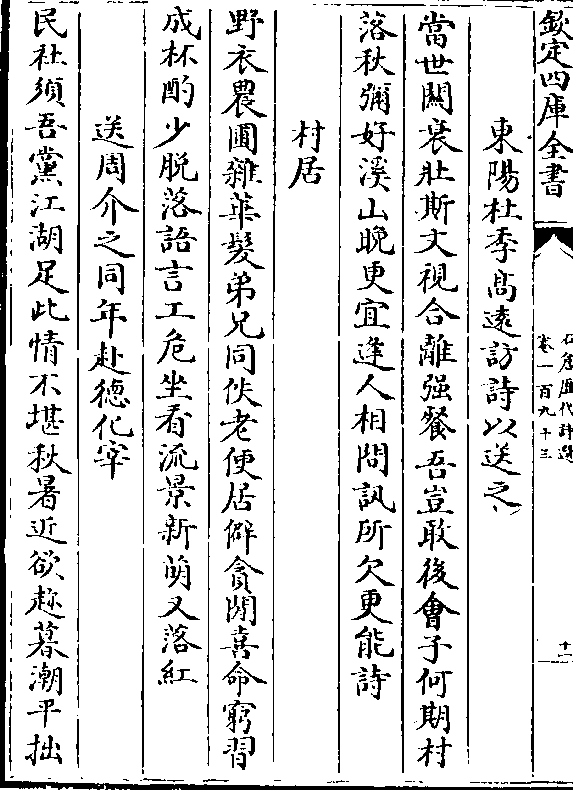 欽定四庫全書
石倉歷代詩選
卷一百九十三
十二
東陽杜季高遠訪詩以送之
當世關衰壯斯文視合離强餐吾豈敢後會子何期村
落秋彌好溪山晚更宜逢人相問訊所欠更能詩
村居
野衣農圃雜華髮弟兄同佚老便居僻貪閒喜命窮習
成杯酌少脱落語言工危坐看流景新萌又落紅
送周介之同年赴德化宰
民社須吾黨江湖足此情不堪秋暑近欲趂暮潮平拙